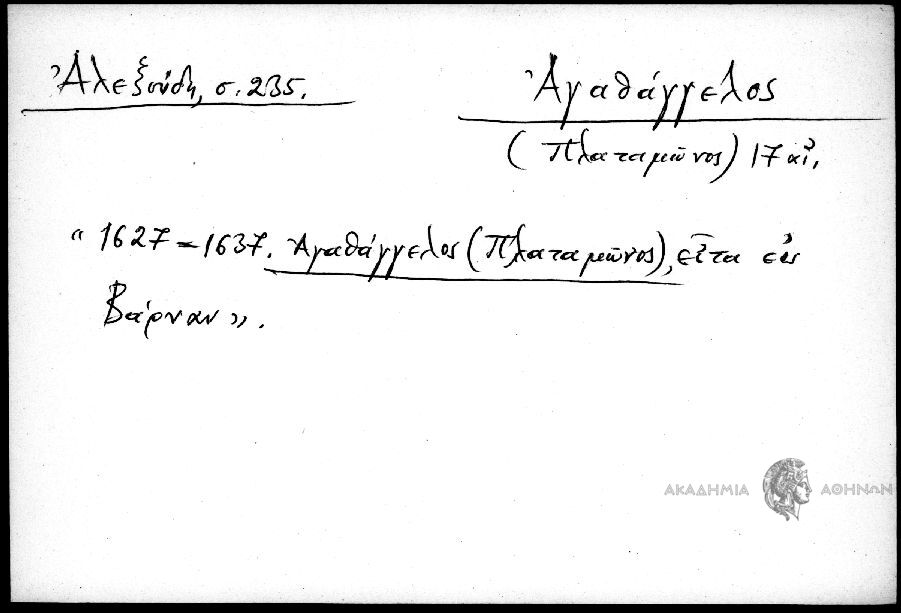 Ἀλεξούδη, σ. 235.
Ἀγαθάγγελος
(Πλαταμῶνος) 17 αἰ.
« 1627 – 1637. Ἀγαθάγγελος (Πλαταμῶνος), εἶτα εἰς
Βάρναν ».
ΑΚΑΔΗΜΙΑ ΑΘΗΝΩΝ